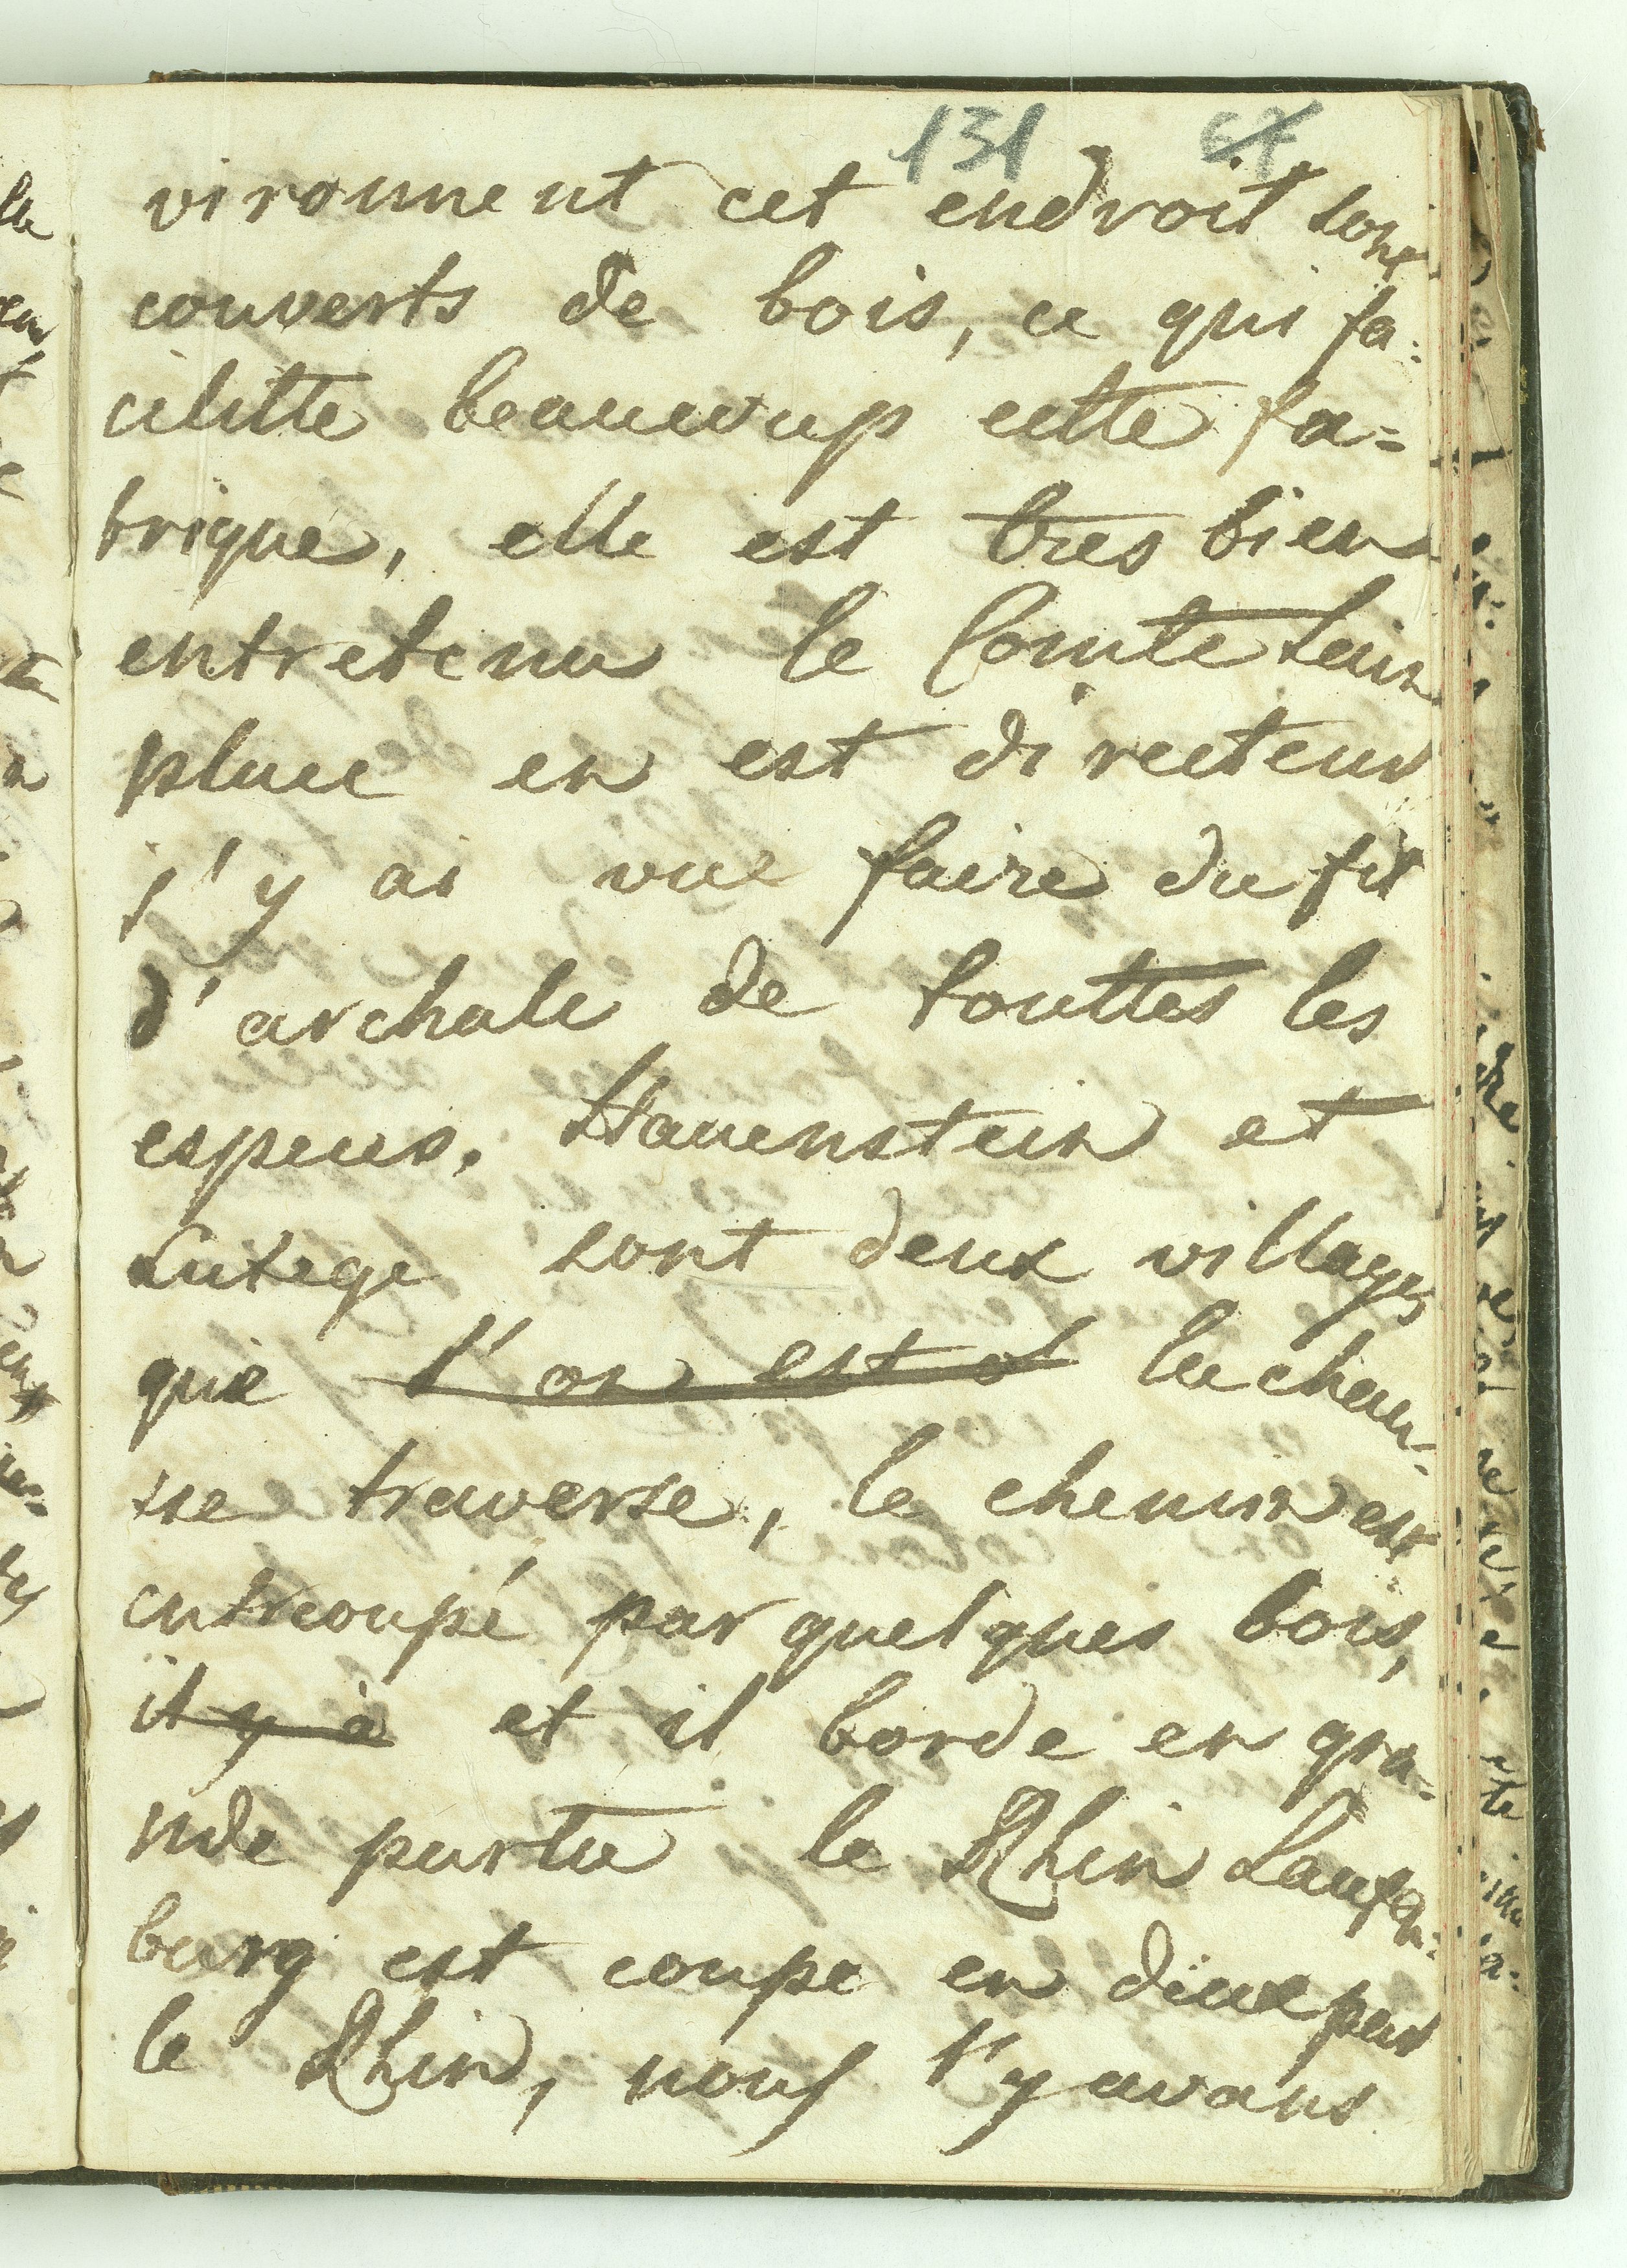 131 67
vironnent cet endroit sont
couverts de bois, ce qui fa:
cilitte beaucoup cette fa=
brique, elle est tres bien
entretenu le Comte Lain
place en est directeur
j'y ai vue faire du fil
d'archale de touttes les
especes. Hauenstein et
Lutege sont deux villages
que l'on est o la chau-
sse traverse, le chemin est
entrecoupé par quelques bois,
il y à et il borde en gra-
nde partie le Rhin Lauffen:
burg est coupe en deux par
le Rhin, nous l'y avons